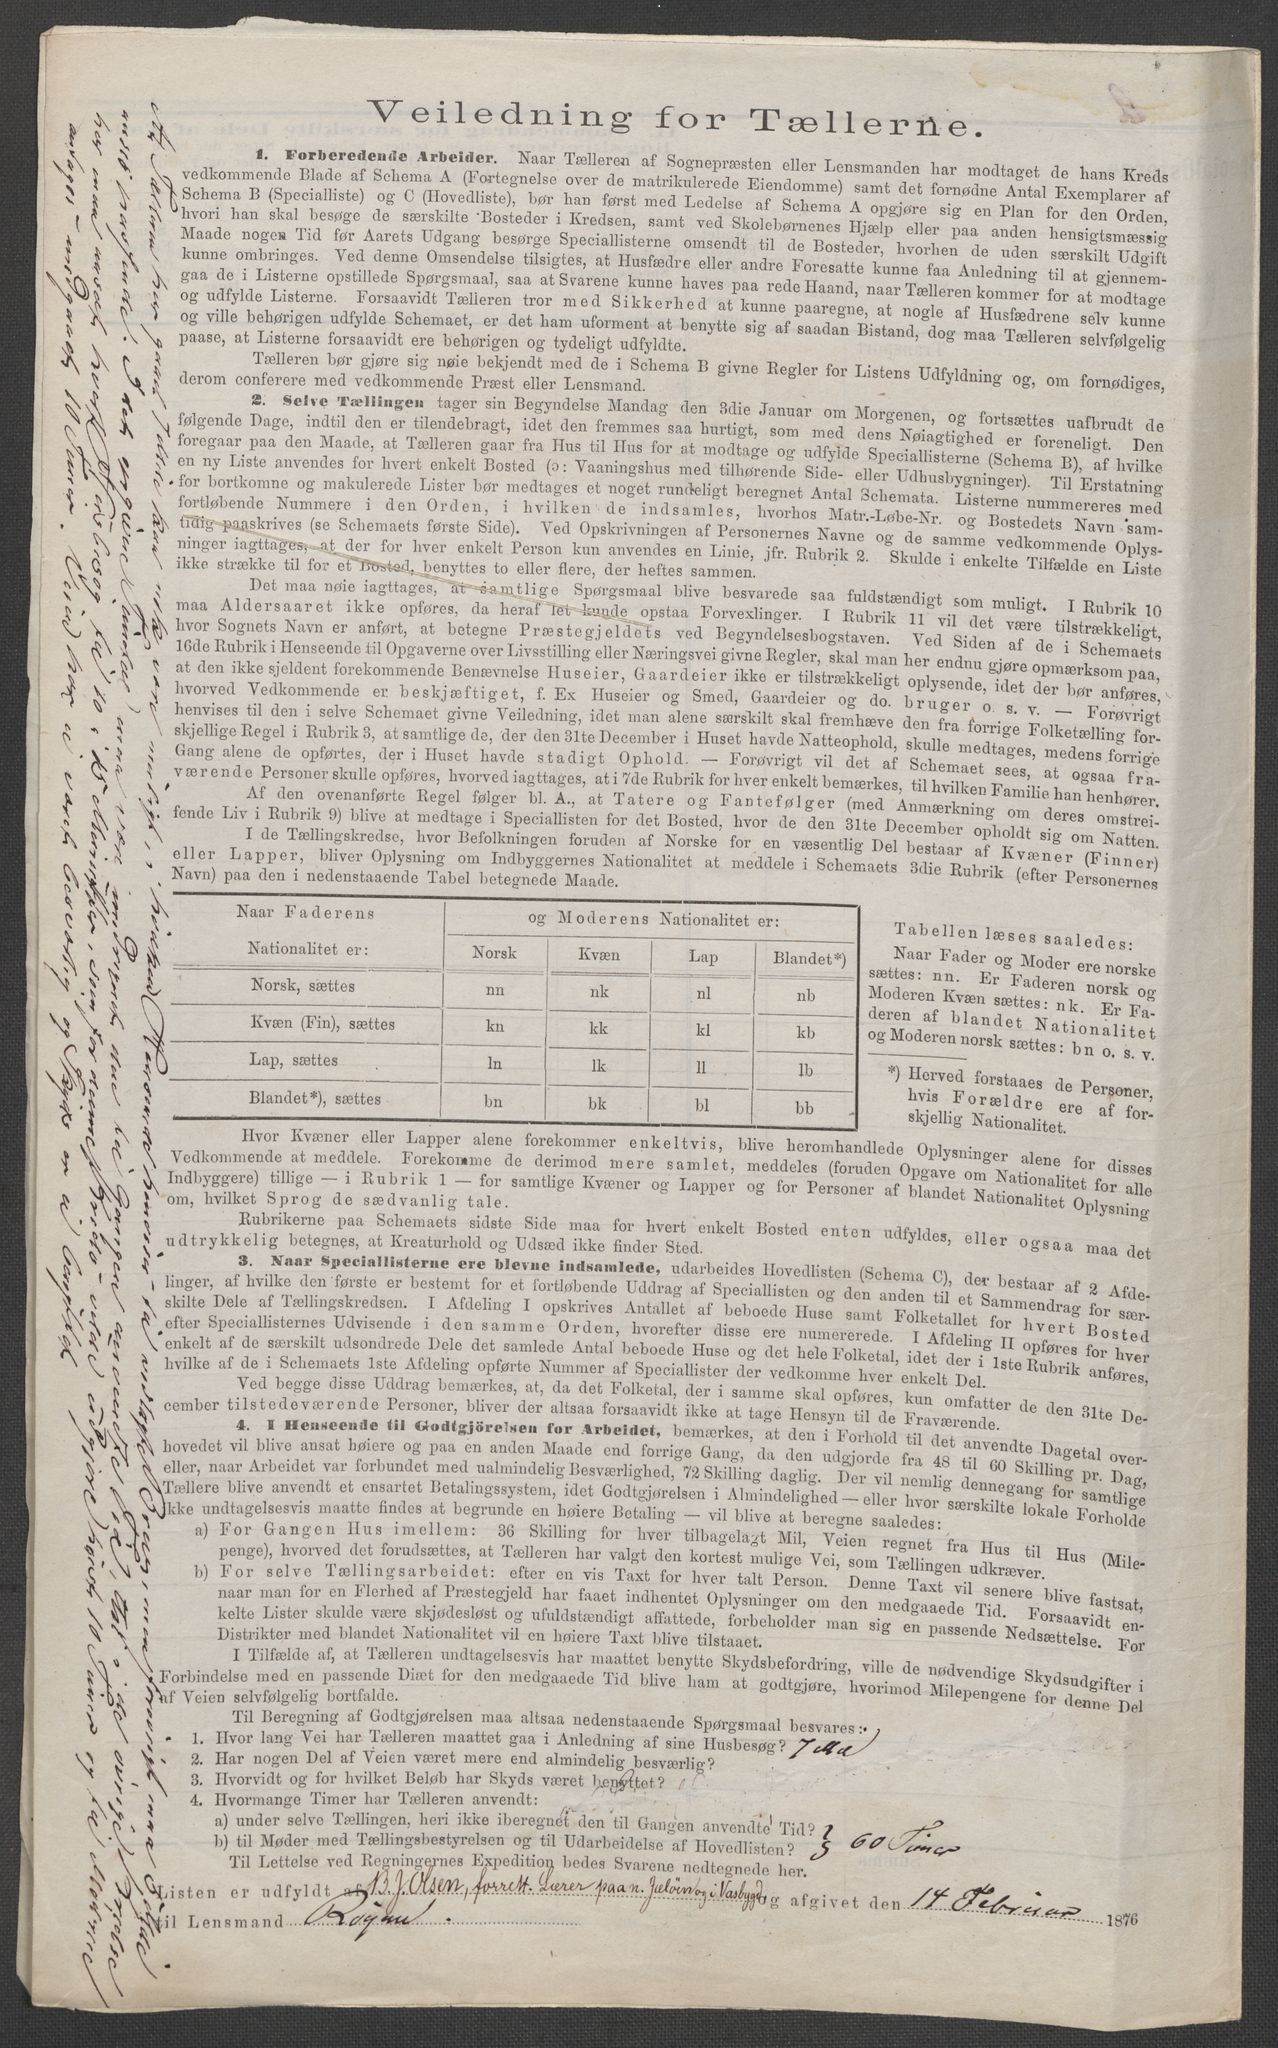 Veiledning for Tællerne.
1. Forberedende Arbeider. Naar Tælleren af Sognepræsten eller Lensmanden har modtaget de hans Kreds
vedkommende Blade af Schema A (Fortegnelse over de matrikulerede Eiendomme) samt det fornødne Antal Exemplarer af
Schema B (Specialliste) og C (Hovedliste), bør han først med Ledelse af Schema A opgjøre sig en Plan for den Orden,
hvori han skal besøge de særskilte Bosteder i Kredsen, samt ved Skolebørnenes Hjælp eller paa anden hensigtsmæssig
Maade nogen Tid før Aarets Udgang besørge Speciallisterne omsendt til de Bosteder, hvorhen de uden særskilt Udgift
kunne ombringes. Ved denne Omsendelse tilsigtes, at Husfædre eller andre Foresatte kunne faa Anledning til at gjennem-
gaa de i Listerne opstillede Spørgsmaal, saa at Svarene kunne haves paa rede Haand, naar Tælleren kommer for at modtage
og udfylde Listerne. Forsaavidt Tælleren tror med Sikkerhed at kunne paaregne, at nogle af Husfædrene selv kunne
og ville behørigen udfylde Schemaet, er det ham uforment at benytte sig af saadan Bistand, dog maa Tælleren selvfølgelig
paase, at Listerne forsaavidt ere behørigen og tydeligt udfyldte.
Tælleren bør gjøre sig nøie bekjendt med de i Schema B givne Regler for Listens Udfyldning og, om fornødiges,
derom conferere med vedkommende Præst eller Lensmand.
2. Selve Tællingen tager sin Begyndelse Mandag den 3die Januar om Morgenen, og fortsættes uafbrudt de
følgende Dage, indtil den er tilendebragt, idet den fremmes saa hurtigt, som med dens Nøiagtighed er foreneligt. Den
foregaar paa den Maade, at Tælleren gaar fra Hus til Hus for at modtage og udfylde Speciallisterne (Schema B), af hvilke
en ny Liste anvendes for hvert enkelt Bosted (ɔ: Vaaningshus med tilhørende Side- eller Udhusbygninger). Til Erstatning
for bortkomne og makulerede Lister bør medtages et noget rundeligt beregnet Antal Schemata. Listerne nummereres med
fortløbende Nummere i den Orden, i hvilken de indsamles, hvorhos Matr.-Løbe-Nr. og Bostedets Navn sam-
tidig paaskrives (se Schemaets første Side). Ved Opskrivningen af Personernes Navne og de samme vedkommende Oplys-
ninger iagttages, at der for hver enkelt Person kun anvendes en Linie, jfr. Rubrik 2. Skulde i enkelte Tilfælde en Liste
ikke strække til for et Bosted, benyttes to eller flere, der heftes sammen.
Det maa nøie iagttages, at samtlige Spørgsmaal blive besvarede saa fuldstændigt som muligt. I Rubrik 10
maa Aldersaaret ikke opføres, da heraf let kunde opstaa Forvexlinger. I Rubrik 11 vil det være tilstrækkeligt,
hvor Sognets Navn er anført, at betegne Præstegjeldets ved Begyndelsesbogstaven. Ved Siden af de i Schemaets
16de Rubrik i Henseende til Opgaverne over Livsstilling eller Næringsvei givne Regler, skal man her endnu gjøre opmærksom paa,
at den ikke sjeldent forekommende Benævnelse Huseier, Gaardeier ikke er tilstrækkeligt oplysende, idet der bør anføres,
hvorved Vedkommende er beskjæftiget, f. Ex Huseier og Smed, Gaardeier og do. bruger o. s. v. — Forøvrigt
henvises til den i selve Schemaet givne Veiledning, idet man alene særskilt skal fremhæve den fra forrige Folketælling for-
skjellige Regel i Rubrik 3, at samtlige de, der den 31te December i Huset havde Natteophold, skulle medtages, medens forrige
Gang alene de opførtes, der i Huset havde stadigt Ophold. — Forøvrigt vil det af Schemaet sees, at ogsaa fra-
værende Personer skulle opføres, hvorved iagttages, at i 7de Rubrik for hver enkelt bemærkes, til hvilken Familie han henhører.
Af den ovenanførte Regel følger bl. A., at Tatere og Fantefølger (med Anmærkning om deres omstrei-
fende Liv i Rubrik 9) blive at medtage i Speciallisten for det Bosted, hvor de den 31te December opholdt sig om Natten.
I de Tællingskredse, hvor Befolkningen foruden af Norske for en væsentlig Del bestaar af Kvæner (Finner)
eller Lapper, bliver Oplysning om Indbyggernes Nationalitet at meddele i Schemaets 3die Rubrik (efter Personernes
Navn) paa den i nedenstaaende Tabel betegnede Maade.
Naar Faderens og Moderens Nationalitet er:
Nationalitet er: Norsk Kvæn Lap Blandet*)
Norsk, sættes nn nk nl nb
Kvæn (Fin), sættes kn kk kl kb
Lap, sættes ln lk ll lb
Blandet*), sættes bn bk bl bb
Tabellen læses saaledes:
Naar Fader og Moder ere norske
sættes: nn. Er Faderen norsk og
Moderen Kvæn sættes: nk. Er Fa-
deren af blandet Nationalitet
og Moderen norsk sættes: bn o. s. v.
*) Herved forstaaes de Personer,
hvis Forældre ere af for-
skjellig Nationalitet.
Hvor Kvæner eller Lapper alene forekommer enkeltvis, blive heromhandlede Oplysninger alene for disses
Vedkommende at meddele. Forekomme de derimod mere samlet, meddeles (foruden Opgave om Nationalitet for alle
Indbyggere) tillige — i Rubrik 1 — for samtlige Kvæner og Lapper og for Personer af blandet Nationalitet Oplysning
om, hvilket Sprog de sædvanlig tale.
Rubrikerne paa Schemaets sidste Side maa for hvert enkelt Bosted enten udfyldes, eller ogsaa maa det
udtrykkelig betegnes, at Kreaturhold og Udsæd ikke finder Sted.
3. Naar Speciallisterne ere blevne indsamlede, udarbeides Hovedlisten (Schema C), der bestaar af 2 Afde-
linger, af hvilke den første er bestemt for et fortløbende Uddrag af Speciallisten og den anden til et Sammendrag for sær-
skilte Dele af Tællingskredsen. I Afdeling I opskrives Antallet af beboede Huse samt Folketallet for hvert Bosted
efter Speciallisternes Udvisende i den samme Orden, hvorefter disse ere nummererede. I Afdeling II opføres for hver
enkelt af de særskilt udsondrede Dele det samlede Antal beboede Huse og det hele Folketal, idet der i 1ste Rubrik anføres,
hvilke af de i Schemaets 1ste Afdeling opførte Nummer af Speciallister der vedkomme hver enkelt Del.
Ved begge disse Uddrag bemærkes, at, da det Folketal, der i samme skal opføres, kun omfatter de den 31te De-
cember tilstedeværende Personer, bliver der altsaa forsaavidt ikke at tage Hensyn til de Fraværende.
4. I Henseende til Godtgjörelsen for Arbeidet, bemærkes, at den i Forhold til det anvendte Dagetal over-
hovedet vil blive ansat høiere og paa en anden Maade end forrige Gang, da den udgjorde fra 48 til 60 Skilling pr. Dag,
eller, naar Arbeidet var forbundet med ualmindelig Besværlighed, 72 Skilling daglig. Der vil nemlig dennegang for samtlige
Tællere blive anvendt et ensartet Betalingssystem, idet Godtgjørelsen i Almindelighed — eller hvor særskilte lokale Forholde
ikke undtagelsesvis maatte findes at begrunde en høiere Betaling — vil blive at beregne saaledes:
a) For Gangen Hus imellem: 36 Skilling for hver tilbagelagt Mil, Veien regnet fra Hus til Hus (Mile-
penge), hvorved det forudsættes, at Tælleren har valgt den kortest mulige Vei, som Tællingen udkræver.
b) For selve Tællingsarbeidet: efter en vis Taxt for hver talt Person. Denne Taxt vil senere blive fastsat,
naar man for en Flerhed af Præstegjeld har faaet indhentet Oplysninger om den medgaaede Tid. Forsaavidt en-
kelte Lister skulde være skjødesløst og ufuldstændigt affattede, forbeholder man sig en passende Nedsættelse. For
Distrikter med blandet Nationalitet vil en høiere Taxt blive tilstaaet.
I Tilfælde af, at Tælleren undtagelsesvis har maattet benytte Skydsbefordring, ville de nødvendige Skydsudgifter i
Forbindelse med en passende Diæt for den medgaaede Tid blive ham at godtgjøre, hvorimod Milepengene for denne Del
af Veien selvfølgelig bortfalde.
Til Beregning af Godtgjørelsen maa altsaa nedenstaaende Spørgsmaal besvares:
1. Hvor lang Vei har Tælleren maattet gaa i Anledning af sine Husbesøg? 7 Mil
2. Har nogen Del af Veien været mere end almindelig besværlig?
3. Hvorvidt og for hvilket Beløb har Skyds været benyttet?
4. Hvormange Timer har Tælleren anvendt:
a) under selve Tællingen, heri ikke iberegnet den til Gangen anvendte Tid?
b) til Møder med Tællingsbestyrelsen og til Udarbeidelse af Hovedlisten? } 60 Timer
Til Lettelse ved Regningernes Expedition bedes Svarene nedtegnede her.
Listen er udfyldt af B. J. Olsen, forrett. Lærer paa n. Jeløen og i Vasbygd, og afgivet den 14 Februar 1876
til Lensmand Rögne.